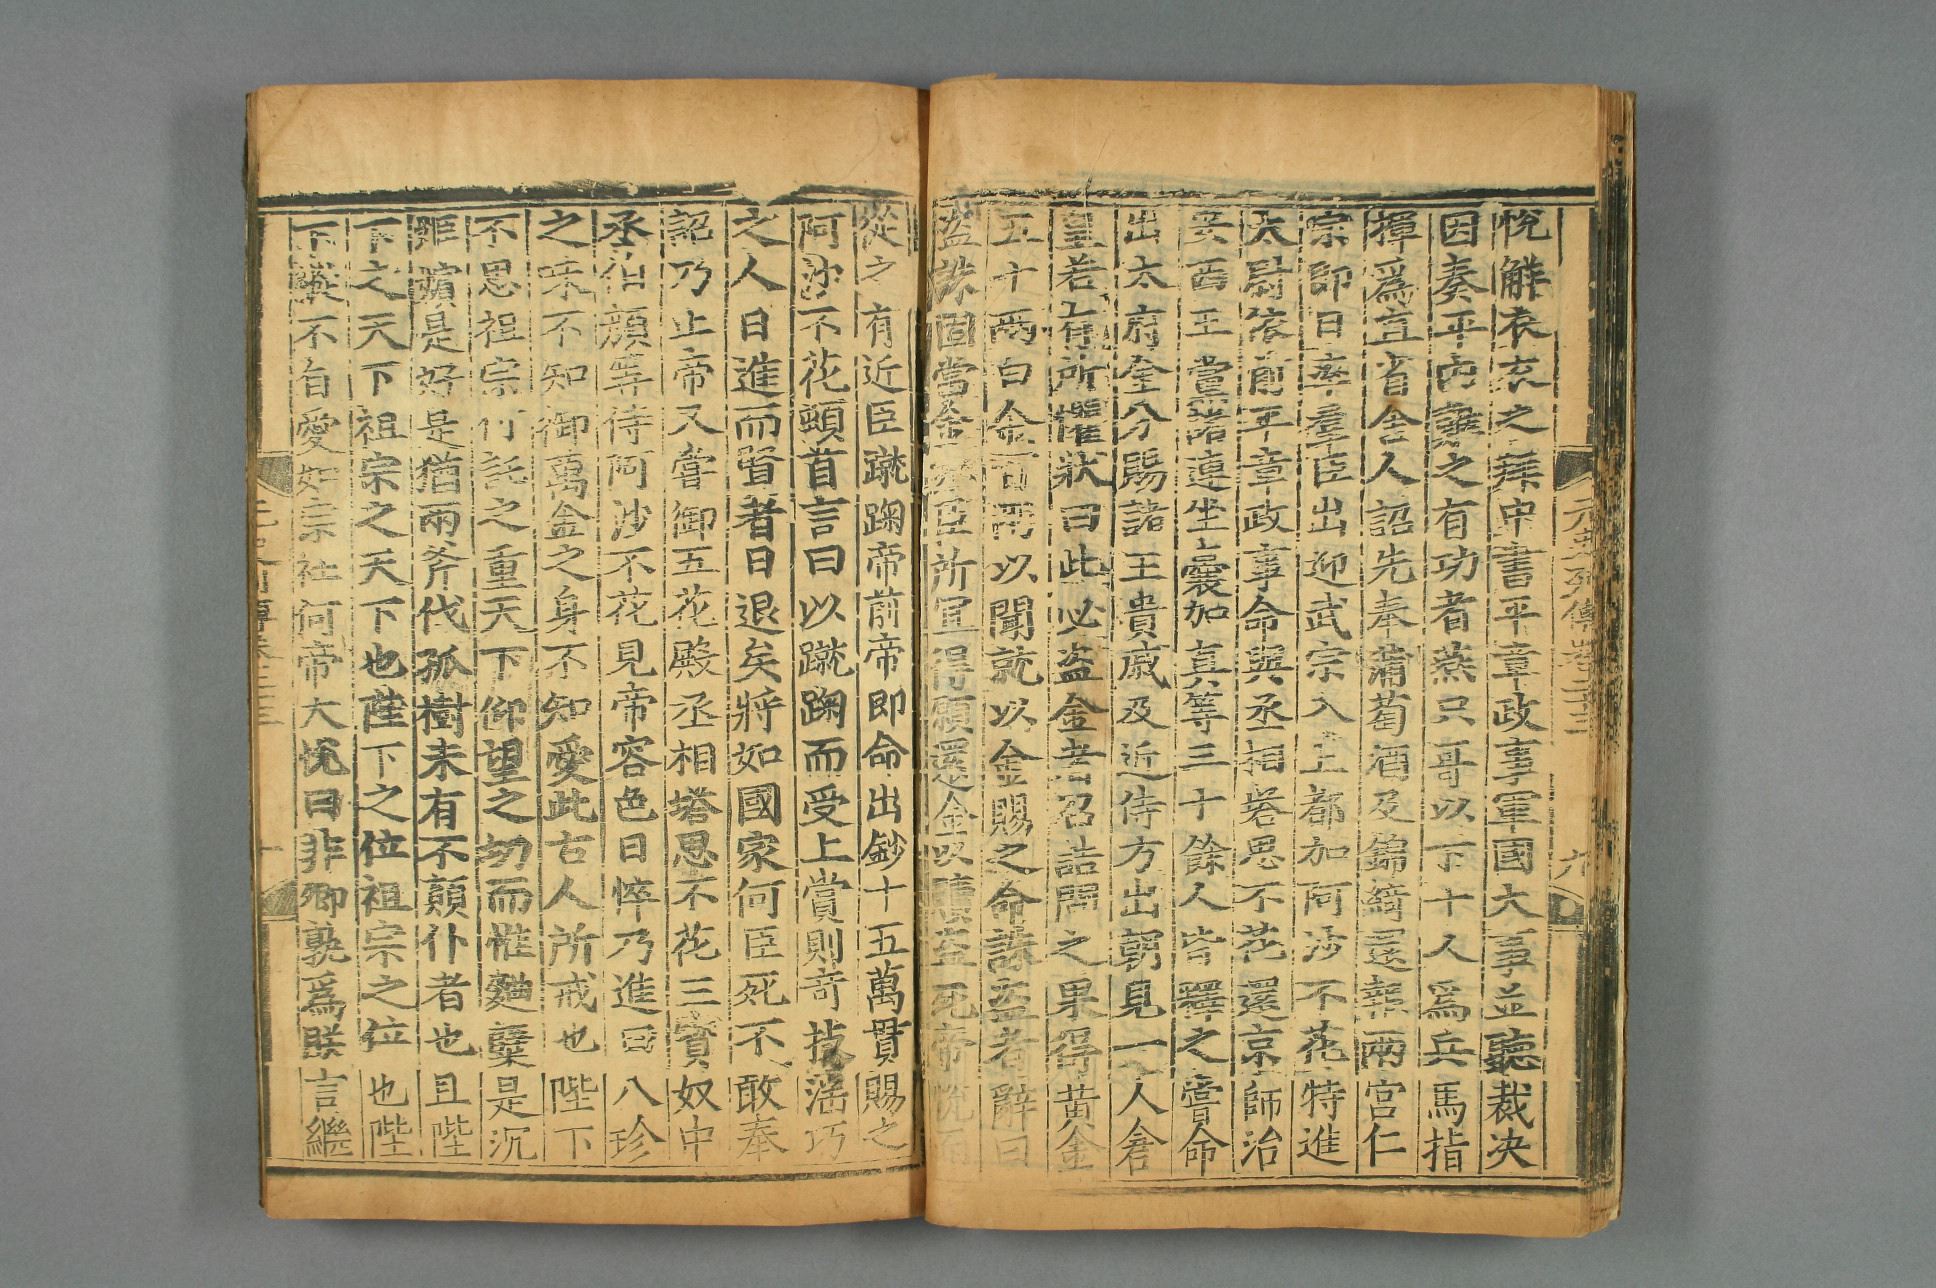 悅解衣衣之拜中書平章政事軍國大事並聽裁决
因奏平內難之有功者燕只哥以下十人爲兵馬指
揮爲直省舍人詔先奉蒲萄酒及錦綺還報兩宮仁
宗即日率羣臣出迎武宗入上都加阿沙不花特進
太尉依前平章政事命與丞相塔思不花還京師治
安西王黨諸連坐囊加真等三十餘人皆釋之賫命
出太府金分賜諸王貴戚及近侍方出朝見一人倉
皇若有所懼狀曰此必盜金者召詰問之果得黃金
五十兩白金百兩以聞就以金賜之命誅盜者辭曰
盜誅固當金非臣所宜得願還金以贖盜死帝悅而
從之有近臣蹴踘帝前帝即命出鈔十五萬貫賜之
阿沙不花頓首言曰以蹴踘而受上賞則奇技滛巧
之人日進而賢者日退矣將如國家何臣死不敢奉
詔乃止帝又嘗御五花殿丞相塔思不花三寳奴中
丞伯顏等侍阿沙不花見帝容色日悴乃進曰八珍
之味不知御萬金之身不知愛此古人所戒也陛下
不思祖宗付託之重天下仰望之切而惟麯糵是沉
姬嬪是好是猶兩斧伐孤樹未有不顛仆者也且陛
下之天下祖宗之天下也陛下之位祖宗之位也陛
下縱不自愛如宗社何帝大悅曰非卿孰爲朕言繼
元史列傳卷二十三
九
十